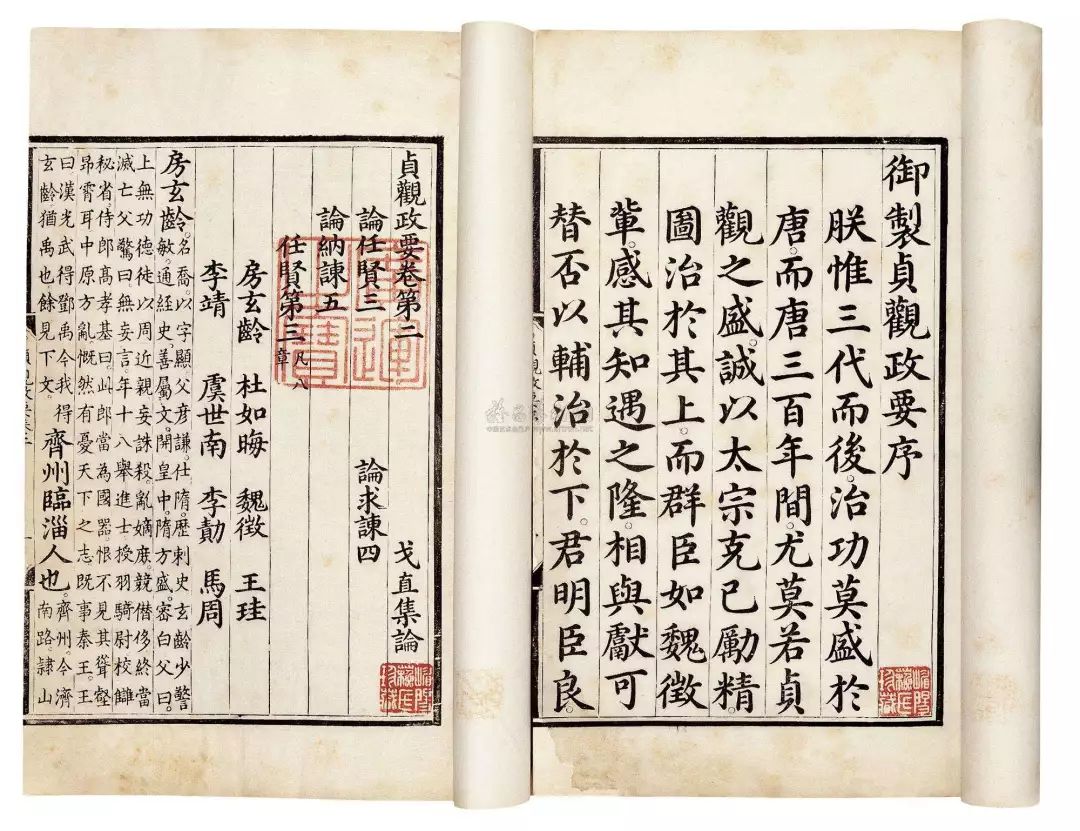 御製貞觀政要序
朕惟三代而後。治功莫盛於
唐。而唐三百年間。尤莫若貞
觀之盛。誠以太宗克己勵精。
圖治於其上。而群臣如魏徵
輩。感其知遇之隆。相與獻可
替否。以輔治於下。君明臣良。
貞觀政要卷第二 戈直集論
論任賢三 論求諫四
論納諫五
任賢第三 凡八章
房玄齡 杜如晦 魏徵 王珪
李靖 虞世南 李勣 馬周
房玄齡。名喬。以字顯。父彥謙。仕隋。歷刺史。玄齡少警
敏。通經史。善屬文。開皇中。隋方盛。密白父曰。
上無功德。徒以周近親。妄誅殺。亂嫡庶。競僭侈。終當
滅亡。父驚曰。無妄言。年十八。舉進士。授羽騎尉。校讎
秘省。侍郎高孝基曰。此郎當為國器。恨不見其聳壑
昂霄耳。中原方亂。慨然有憂天下之志。既事秦王。王
曰。漢光武得鄧禹。今我得
玄齡。猶禹也。餘見下文。
齊州臨淄人也。齊州。今濟
南路。隸山